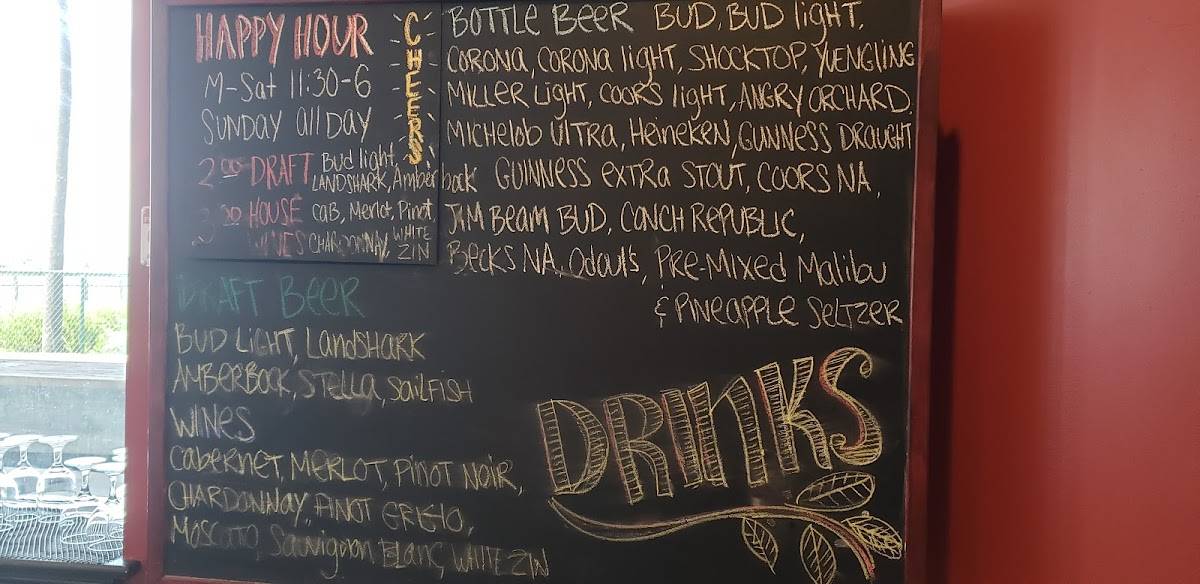 HAPPY HOUR
M-Sat 11:30-6
SUNDAY All DAY
2.00 DRAFT Bud light,
LANDSHARK, Amberbock
3.00 HOUSE CAB, Merlot, Pinot,
WINES CHARDONNAY, WHITE ZIN
CHEERS
BOTTLE BEER BUD, BUD light,
CORONA, CORONA light, SHOCKTOP, YUENGLING
MILLER light, COORS light, ANGRY ORCHARD.
MICHELOB UlTRA, HEINEKEN, GUNNESS DRAUGHT
GUINNESS EXTRA STOUT, COORS NA,
JIM BEAM BUD, CONCH REPUBLIC,
BECKS NA, Odoul's, PRE-MIXED MALIBU
& PINEAPPLE SELTZER
DRAFT BEER
BUD LIGHT, LANDSHARK
AMBERBOCK, STELLA, SAILFISH
WINES
CABERNET, MERLOT, PINOT NOIR,
CHARDONNAY, PINOT GRIGIO,
MOSCATO, Sauvignon BLANC, WHITE ZIN
DRINKS